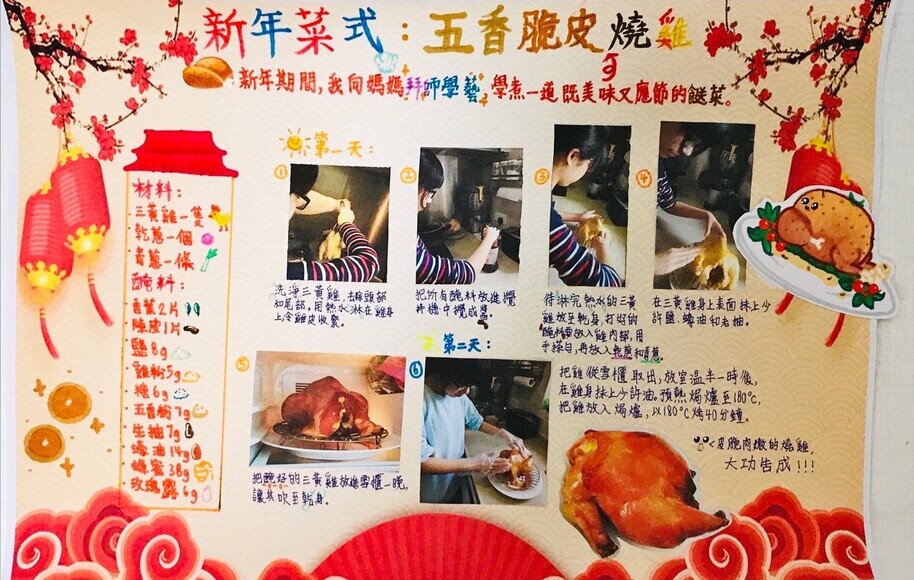 新年菜式：五香脆皮燒雞
新年期間，我向媽媽拜師學藝，學煮一道既美味又應節的餸菜。
材料：
三黃雞一隻
乾蔥一個
青蔥一條
醃料：
香葉2片
陳皮1片
鹽8g
雞粉5g
糖6g
五香粉7g
生抽7g
蠔油14g
蜂蜜38g
玫瑰露6g
第一天：
①
洗淨三黃雞，去除頭部
和尾部，用熱水淋在雞身
上令雞皮收緊。
②
把所有醃料放進攪
拌機中攪成醬。
③
待淋完熱水的三黃
雞放至乾身，打好的
醃料要放入雞內部，用
手抹勻，再放入乾蔥和青蔥。
④
在三黃雞身上表面抹上少
許鹽、蠔油和老抽。
⑤
把醃好的三黃雞放進雪櫃一晚，
讓其吹至乾身。
第二天：
⑥
把雞從雪櫃取出，放室溫半一時候，
在雞身抹上少許油。預熱焗爐至180°C，
把雞放入焗爐，以180°C烤40分鐘。
皮脆肉嫩的燒雞
大功告成！！！